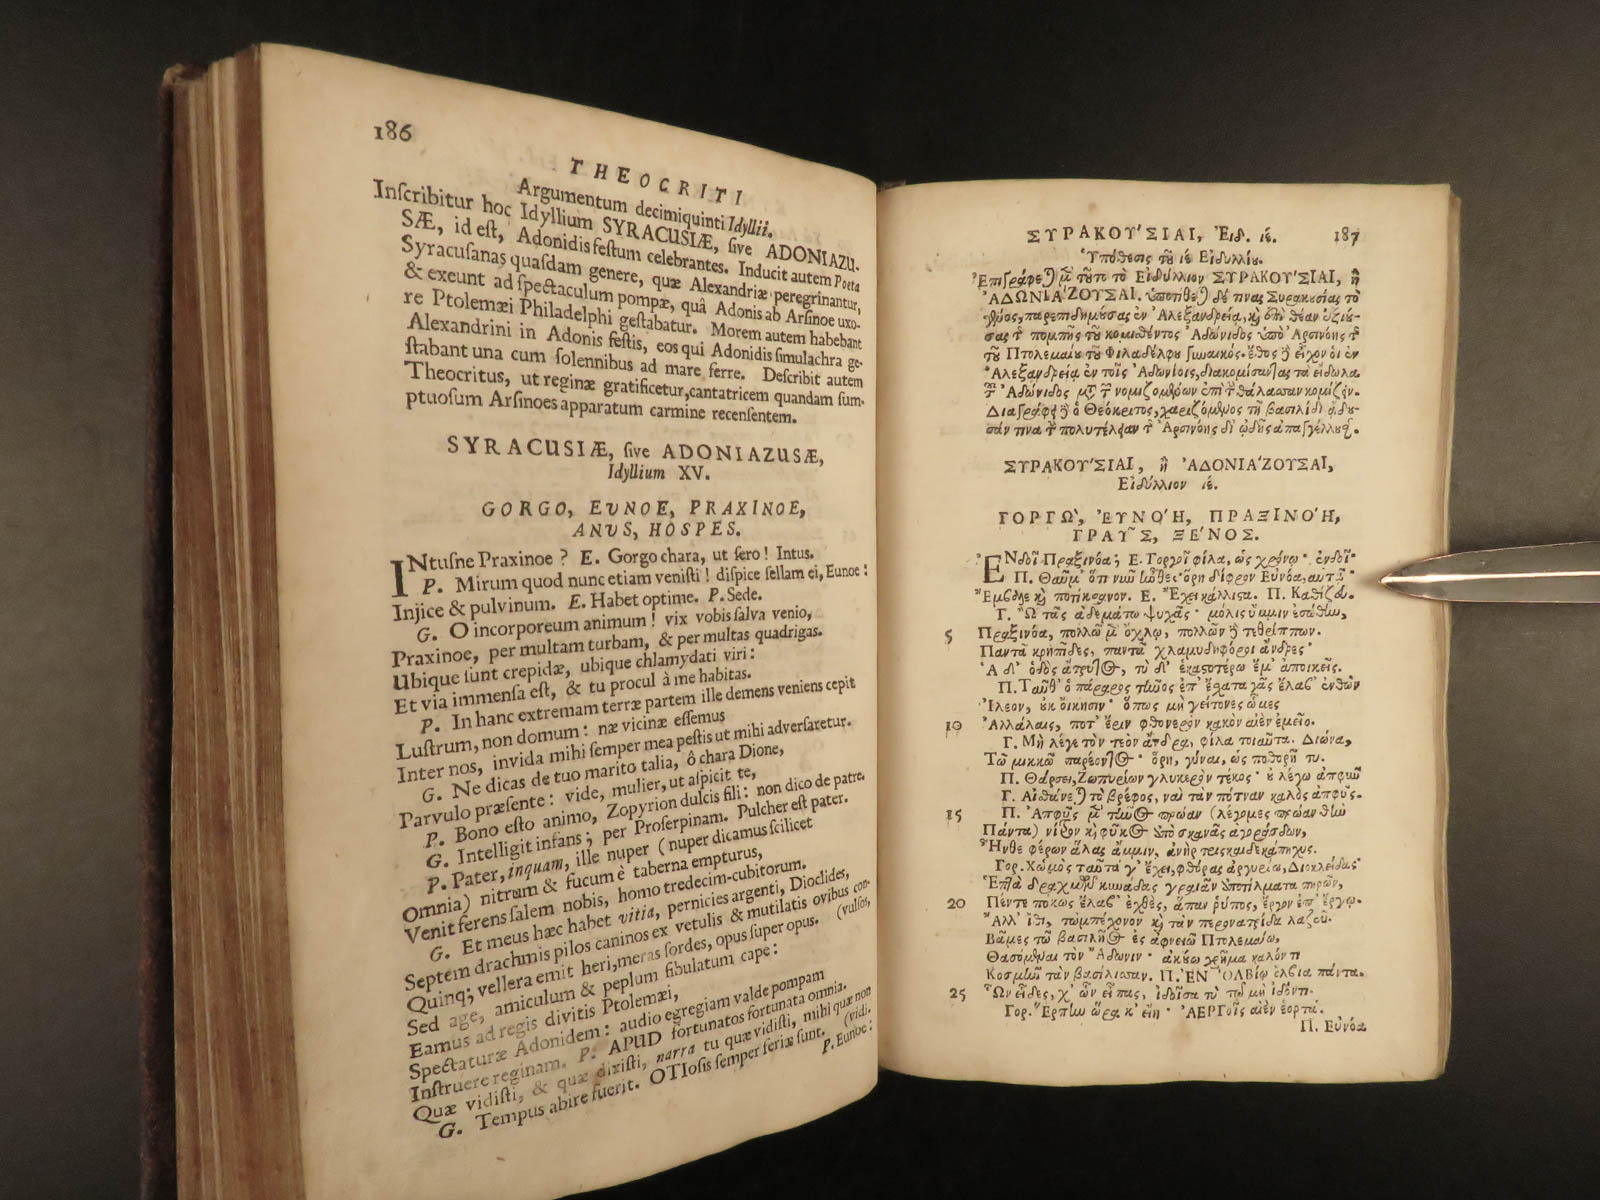 186
THEOCRITI
Argumentum decimiquinti Idyllii.
Inſcribitur hoc Idyllium SYRACUSIÆ, ſive ADONIAZU-
SÆ, id eſt, Adonidis feſtum celebrantes. Inducit autem Poeta
Syracuſanas quaſdam genere, quæ Alexandriæ peregrinantur,
& exeunt ad ſpectaculum pompæ, quâ Adonis ab Arſinoe uxo-
re Ptolemæi Philadelphi geſtabatur. Morem autem habebant
Alexandrini in Adonis feſtis, eos qui Adonidis ſimulachra ge-
ſtabant una cum ſolennibus ad mare ferre. Deſcribit autem
Theocritus, ut reginæ gratificetur, cantatricem quandam ſum-
ptuoſum Arſinoes apparatum carmine recenſentem.
SYRACUSIÆ, ſive ADONIAZUSÆ,
Idyllium XV.
GORGO, EUNOE, PRAXINOE,
ANUS, HOSPES.
INtuſne Praxinoe? E. Gorgo chara, ut ſero! Intus.
P. Mirum quod nunc etiam veniſti! diſpice ſellam ei, Eunoe:
Injice & pulvinum. E. Habet optime. P. Sede.
G. O incorporeum animum! vix vobis ſalva venio,
Praxinoe, per multam turbam, & per multas quadrigas.
Ubique ſunt crepidæ, ubique chlamydati viri:
Et via immenſa eſt, & tu procul à me habitas.
P. In hanc extremam terræ partem ille demens veniens cepit
Luſtrum, non domum: næ vicinæ eſſemus
Inter nos, invida mihi ſemper mea peſtis ut mihi adverſaretur.
G. Ne dicas de tuo marito talia, ô chara Dione,
Parvulo præſente: vide, mulier, ut aſpicit te,
P. Bono eſto animo, Zopyrion dulcis fili: non dico de patre.
G. Intelligit infans; per Proſerpinam. Pulcher eſt pater.
P. Pater, inquam, ille nuper (nuper dicamus ſcilicet
Omnia) nitrum & fucum è taberna empturus,
Venit ferens ſalem nobis, homo tredecim-cubitorum.
G. Et meus hæc habet vitia, pernicies argenti, Dioclides,
Septem drachmis pilos caninos ex vetulis & mutilatis ovibus con-
(vulſos,
Quinq; vellera emit heri, meras ſordes, opus ſuper opus.
Sed age, amiculum & peplum fibulatum cape:
Eamus ad regis divitis Ptolemæi,
Spectaturæ Adonidem: audio egregiam valde pompam
Inſtruere reginam. P. APUD fortunatos fortunata omnia.
Quæ vidiſti, & quæ dixiſti, narra tu quæ vidiſti, mihi quæ non
(vidi.
G. Tempus abire fuerit. OTIoſis ſemper feriæ ſunt.
P. Eunoe:
ΣΥΡΑΚΟΥ´ΣΙΑΙ, Ἐιδ. ιέ. 187
Ὑπόθεσις τοῦ ιέ Εἰδυλλίου.
Ἐπιγράφεται μὲν τοῦτο τὸ Εἰδύλλιον ΣΥΡΑΚΟΥ´ΣΙΑΙ, ἢ
ἈΔΩΝΙΑ´ΖΟΥΣΑΙ. ὑποτίθεται δέ τινας Συρακουσίας τὸ
γένος, παρεπιδημούσας ἐν Ἀλεξανδρείᾳ, καὶ ἐπὶ θέαν ἐξιού-
σας τῆς πομπῆς τοῦ κομισθέντος Ἀδώνιδος ὑπὸ Ἀρσινόης τῆς
τοῦ Πτολεμαίου τοῦ Φιλαδέλφου γυναικός. ἔθος δὲ εἶχον οἱ ἐν
Ἀλεξανδρείᾳ ἐν τοῖς Ἀδωνίοις, διακομίσαντας τὰ εἴδωλα
τοῦ Ἀδώνιδος μετὰ τῶν νομιζομένων ἐπὶ τὴν θάλασσαν κομίζειν.
Διαγράφει δὲ ὁ Θεόκριτος, χαριζόμενος τῇ βασιλίδι ᾄδου-
σάν τινα τὴν πολυτέλειαν τῆς Ἀρσινόης δι' ᾠδῆς ἀπαγγέλλουσαν.
ΣΥΡΑΚΟΥ´ΣΙΑΙ, ἢ ἈΔΟΝΙΑ´ΖΟΥΣΑΙ,
Εἰδύλλιον ιέ.
ΓΟΡΓΩ`, ἘΥΝΟ´Η, ΠΡΑΞΙΝΟ´Η,
ΓΡΑΥ῀Σ, ΞΕ´ΝΟΣ.
ἜΝδοῖ Πραξινόα; Ε. Γοργοῖ φίλα, ὡς χρόνῳ· ἐνδοῖ·
Π. Θαῦμ' ὅτι νῦν ἦνθες· ὅρη δίφρον Εὐνόα, αὐτῇ·
Ἔμβαλε καὶ ποτίκρανον. Ε. Ἔχει κάλλιστα. Π. Καθίζου.
Γ. Ὢ τᾶς ἀδεμάτω ψυχᾶς· μόλις ὔμμιν ἐσώθην,
5 Πραξινόα, πολλῶ μὲν ὄχλῳ, πολλῶν δὲ τεθρίππων.
Παντᾶ κρηπῖδες, παντᾶ χλαμυδηφόροι ἄνδρες·
Ἁ δ' ὁδὸς ἄτρυτος, τὺ δ' ἑκαστοτέρω ἔμ' ἀποικεῖς.
Π. Ταῦθ' ὁ πάραρος τῆνος ἐπ' ἔσχατα γᾶς ἔλαβ' ἐνθὼν
Ἰλεὸν, οὐκ οἴκησιν· ὅπως μὴ γείτονες ὦμες
10 Ἀλλάλαις, ποτ' ἔριν φθονερὸν κακὸν αἰὲν ἐμεῖο.
Γ. Μὴ λέγε τὸν τεὸν ἄνδρα, φίλα τοιαῦτα. Διώνα,
Τῶ μικκῶ παρέοντος· ὅρη, γύναι, ὡς ποθορῇ τυ.
Π. Θάρσει, Ζωπυρίων γλυκερὸν τέκος· οὐ λέγω ἀπφῦν
Γ. Αἰσθάνεται τὸ βρέφος, ναὶ τὰν πότνιαν καλὸς ἀπφύς.
15 Π. Ἀπφῦς μὲν τῆνος πρώαν (λέγομες πρώαν θὴν
Πάντα) νίτρον καὶ φῦκος ὑπὸ σκανᾶς ἀγοράσδων,
Ἦνθε φέρων ἅλας ἄμμιν, ἀνὴρ τρεισκαιδεκάπηχυς.
Γορ. Χὡμὸς ταῦτά γ' ἔχει, φθόρος ἀργυρίω, Διοκλείδας·
Ἑπτὰ δραχμῶν κυνάδας γραιᾶν ἀποτίλματα πηρῶν,
20 Πέντε πόκως ἔλαβ' ἐχθὲς, ἅπαν ῥύπος, ἔργον ἐπ' ἔργῳ.
Ἀλλ' ἴθι, τὠμπέχονον καὶ τὰν περονατρίδα λαζοῦ.
Βᾶμες τῶ βασιλῆος ἐς ἀφνειῶ Πτολεμαίω,
Θασόμεναι τὸν Ἄδωνιν· ἀκούω χρῆμα καλόν τι
Κοσμῆν τὰν βασίλισσαν. Π. ἘΝ ὈΛΒίῳ ὄλβια πάντα.
25 Ὧν εἶδες, χ' ὧν εἶπας, ἰδοῖσα τὺ τῷ μὴ ἰδόντι.
Γορ. Ἕρπειν ὥρα κ' εἴη· ἈΕΡΓοῖς αἰὲν ἑορτά.
Π. Εὐνόα